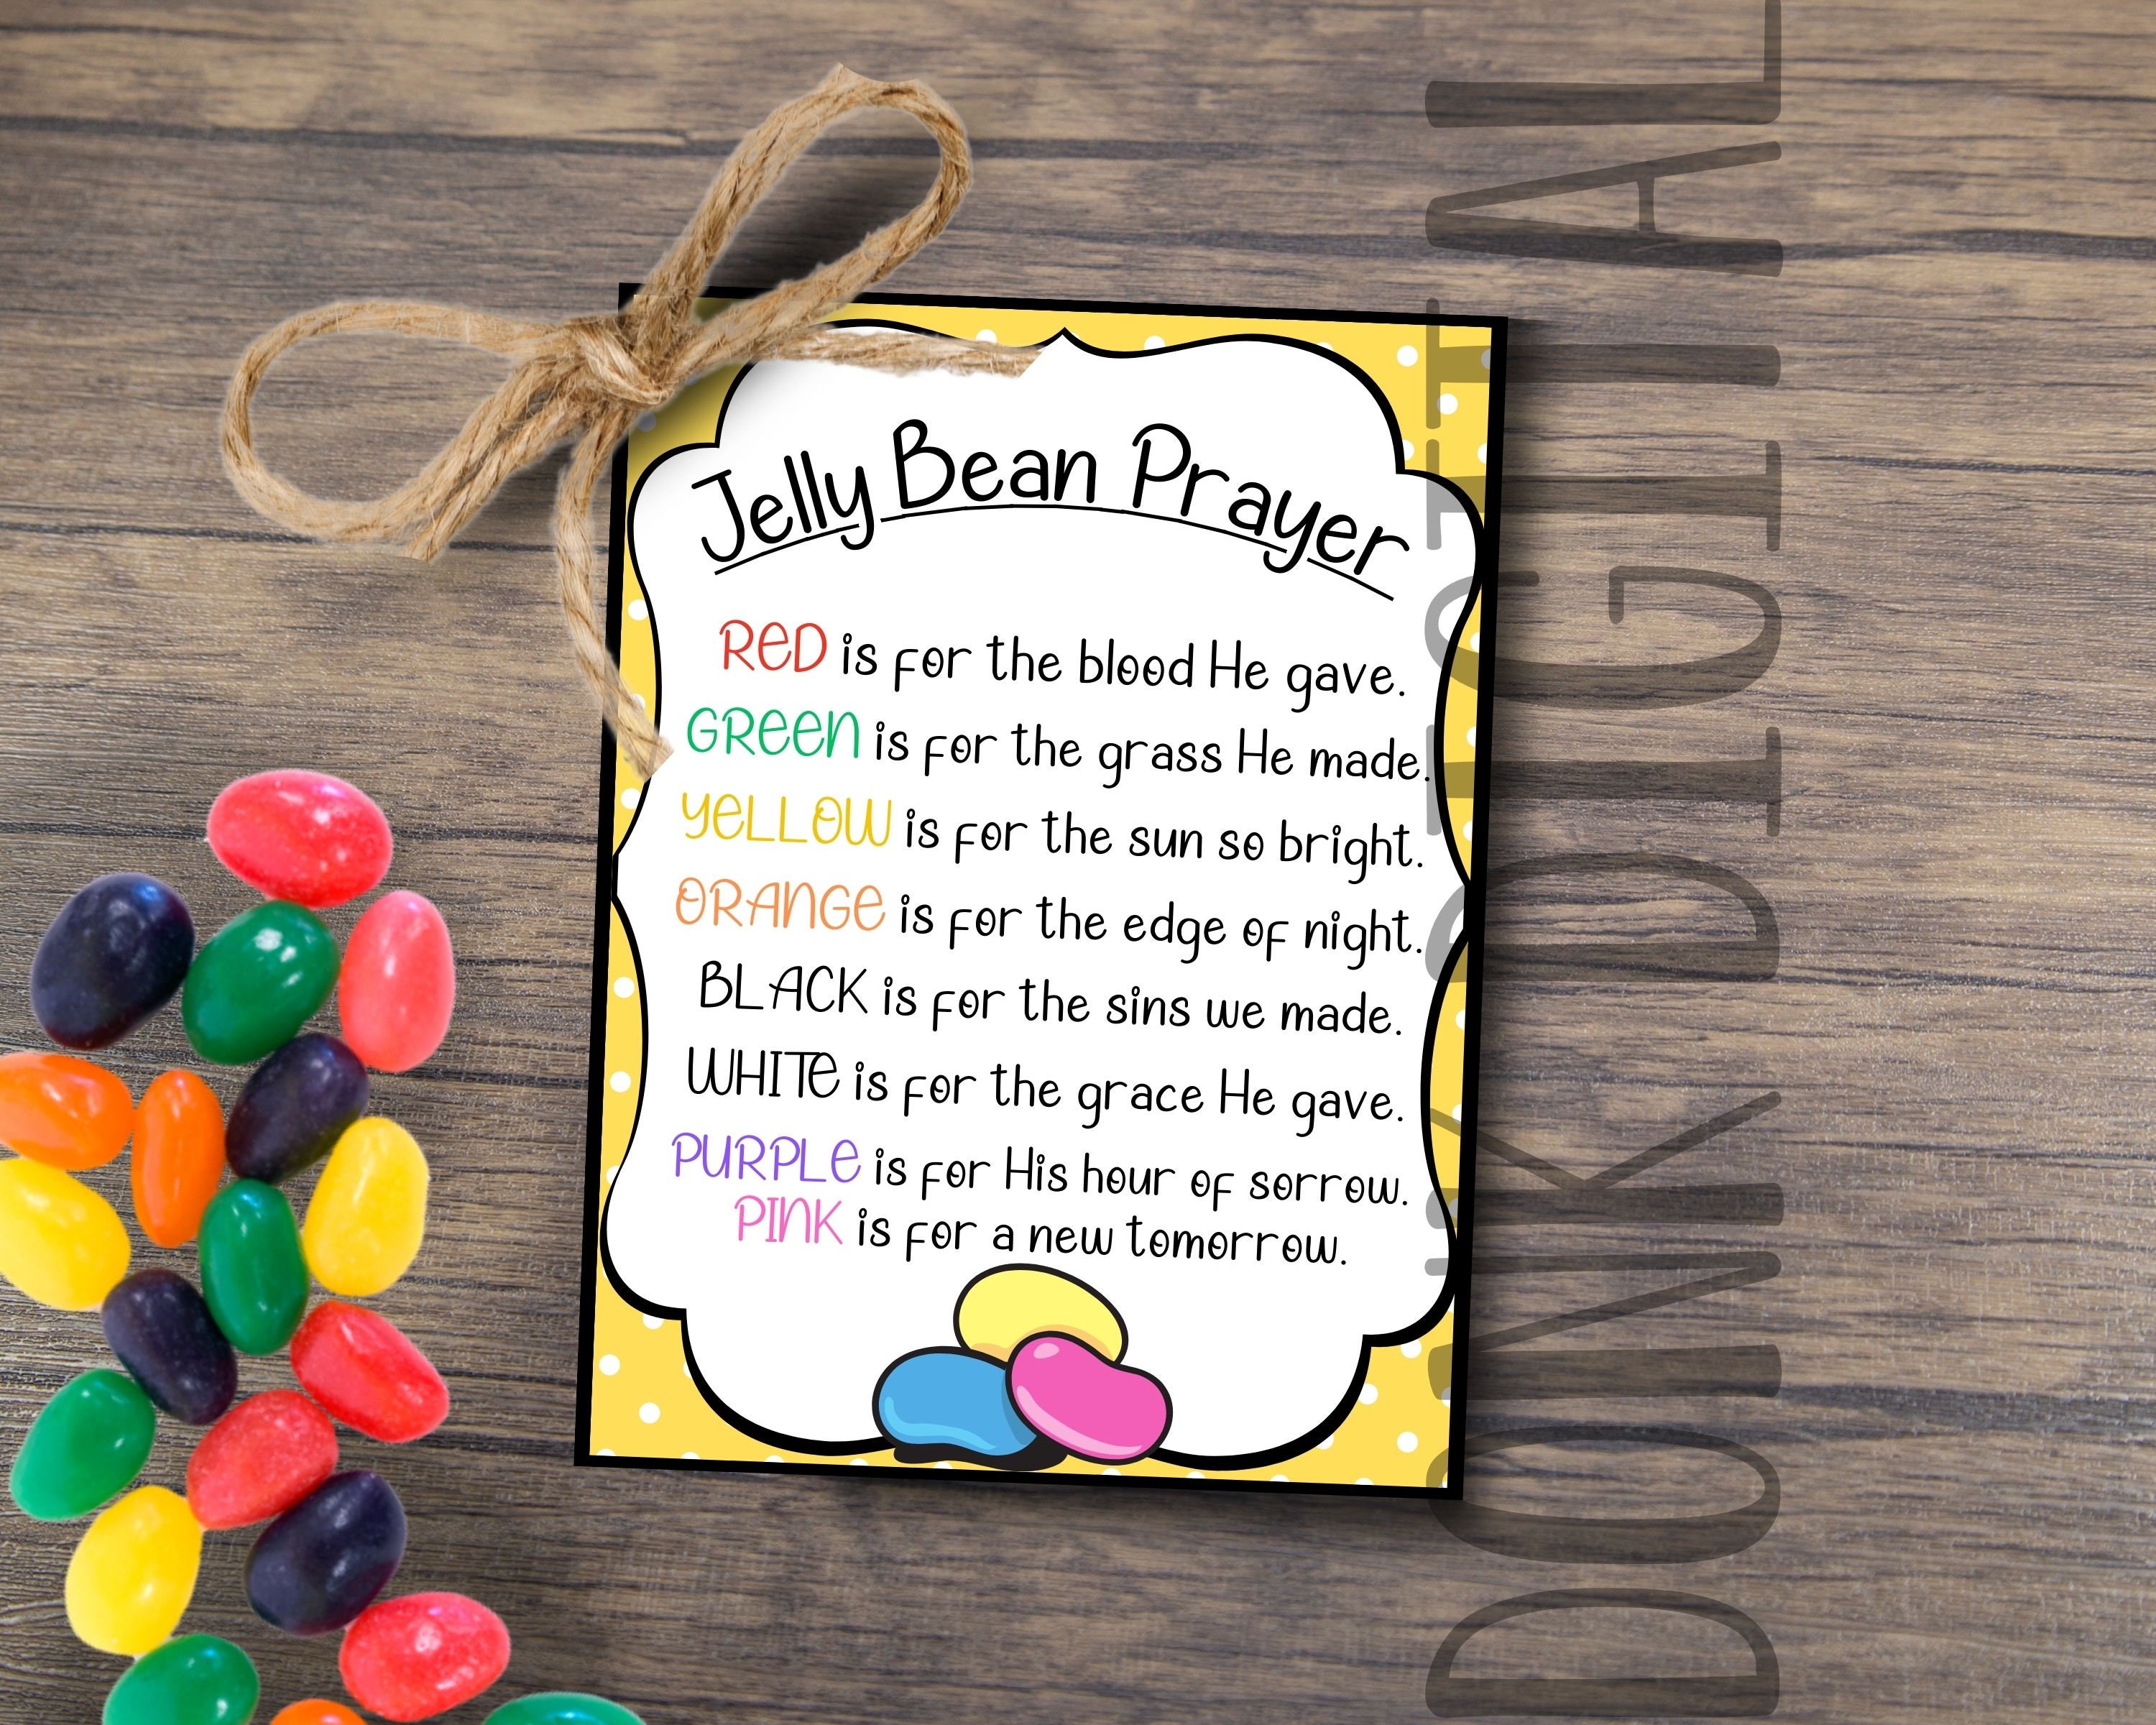 Jelly Bean Prayer
RED is for the blood He gave.
GREEN is for the grass He made.
YELLOW is for the sun so bright.
ORANGE is for the edge of night.
BLACK is for the sins we made.
WHITE is for the grace He gave.
PURPLE is for His hour of sorrow.
PINK is for a new tomorrow.
DOINK DIGITAL